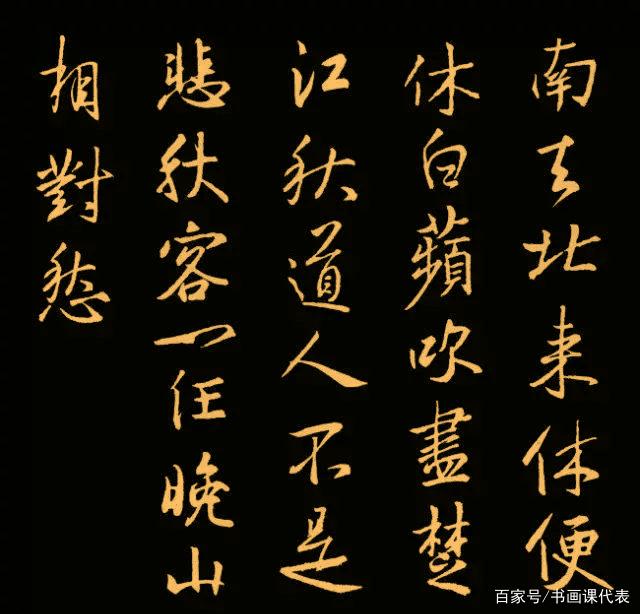 南去北来休便
休白蘋吹盡楚
江秋道人不是
悲秋客一任晚山
相對愁
百家号/书画课代表